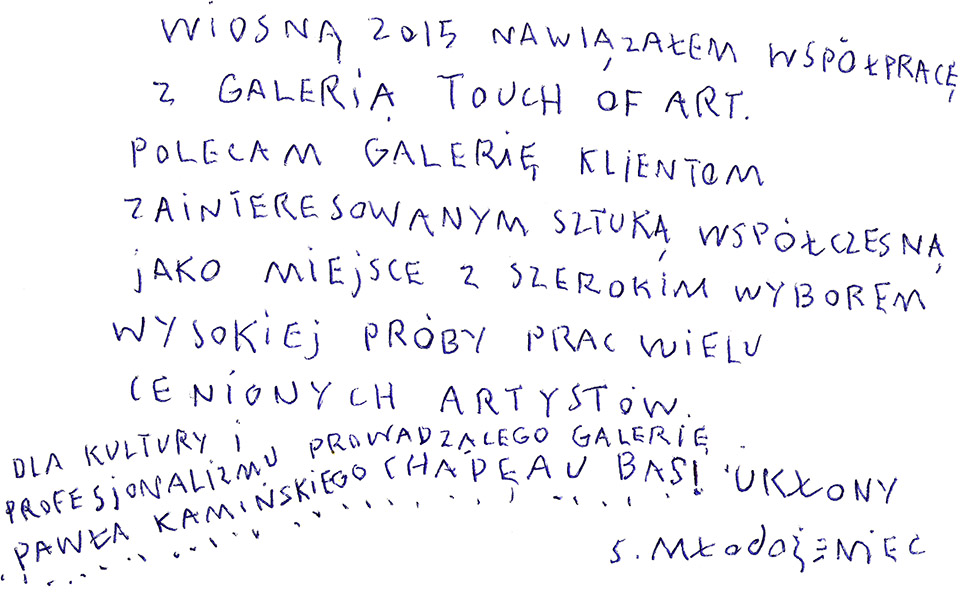 WIOSNĄ 2015 NAWIĄZAŁEM WSPÓŁPRACĘ
Z GALERIĄ TOUCH OF ART.
POLECAM GALERIĘ KLIENTOM
ZAINTERESOWANYM SZTUKĄ WSPÓŁCZESNĄ
jAKO MIEjSCE Z SZEROKIM WYBOREM
WYSOKIEj PRÓBY PRAC WIELU
CENIONYCH ARTYSTÓW.
DLA KULTURY i PROWADZĄCEGO GALERIĘ
PROFESjONALIZMU
PAWŁA KAMIŃSKIEGO CHAPĘAU BAS! UKŁONY
S. MŁodożENIEC